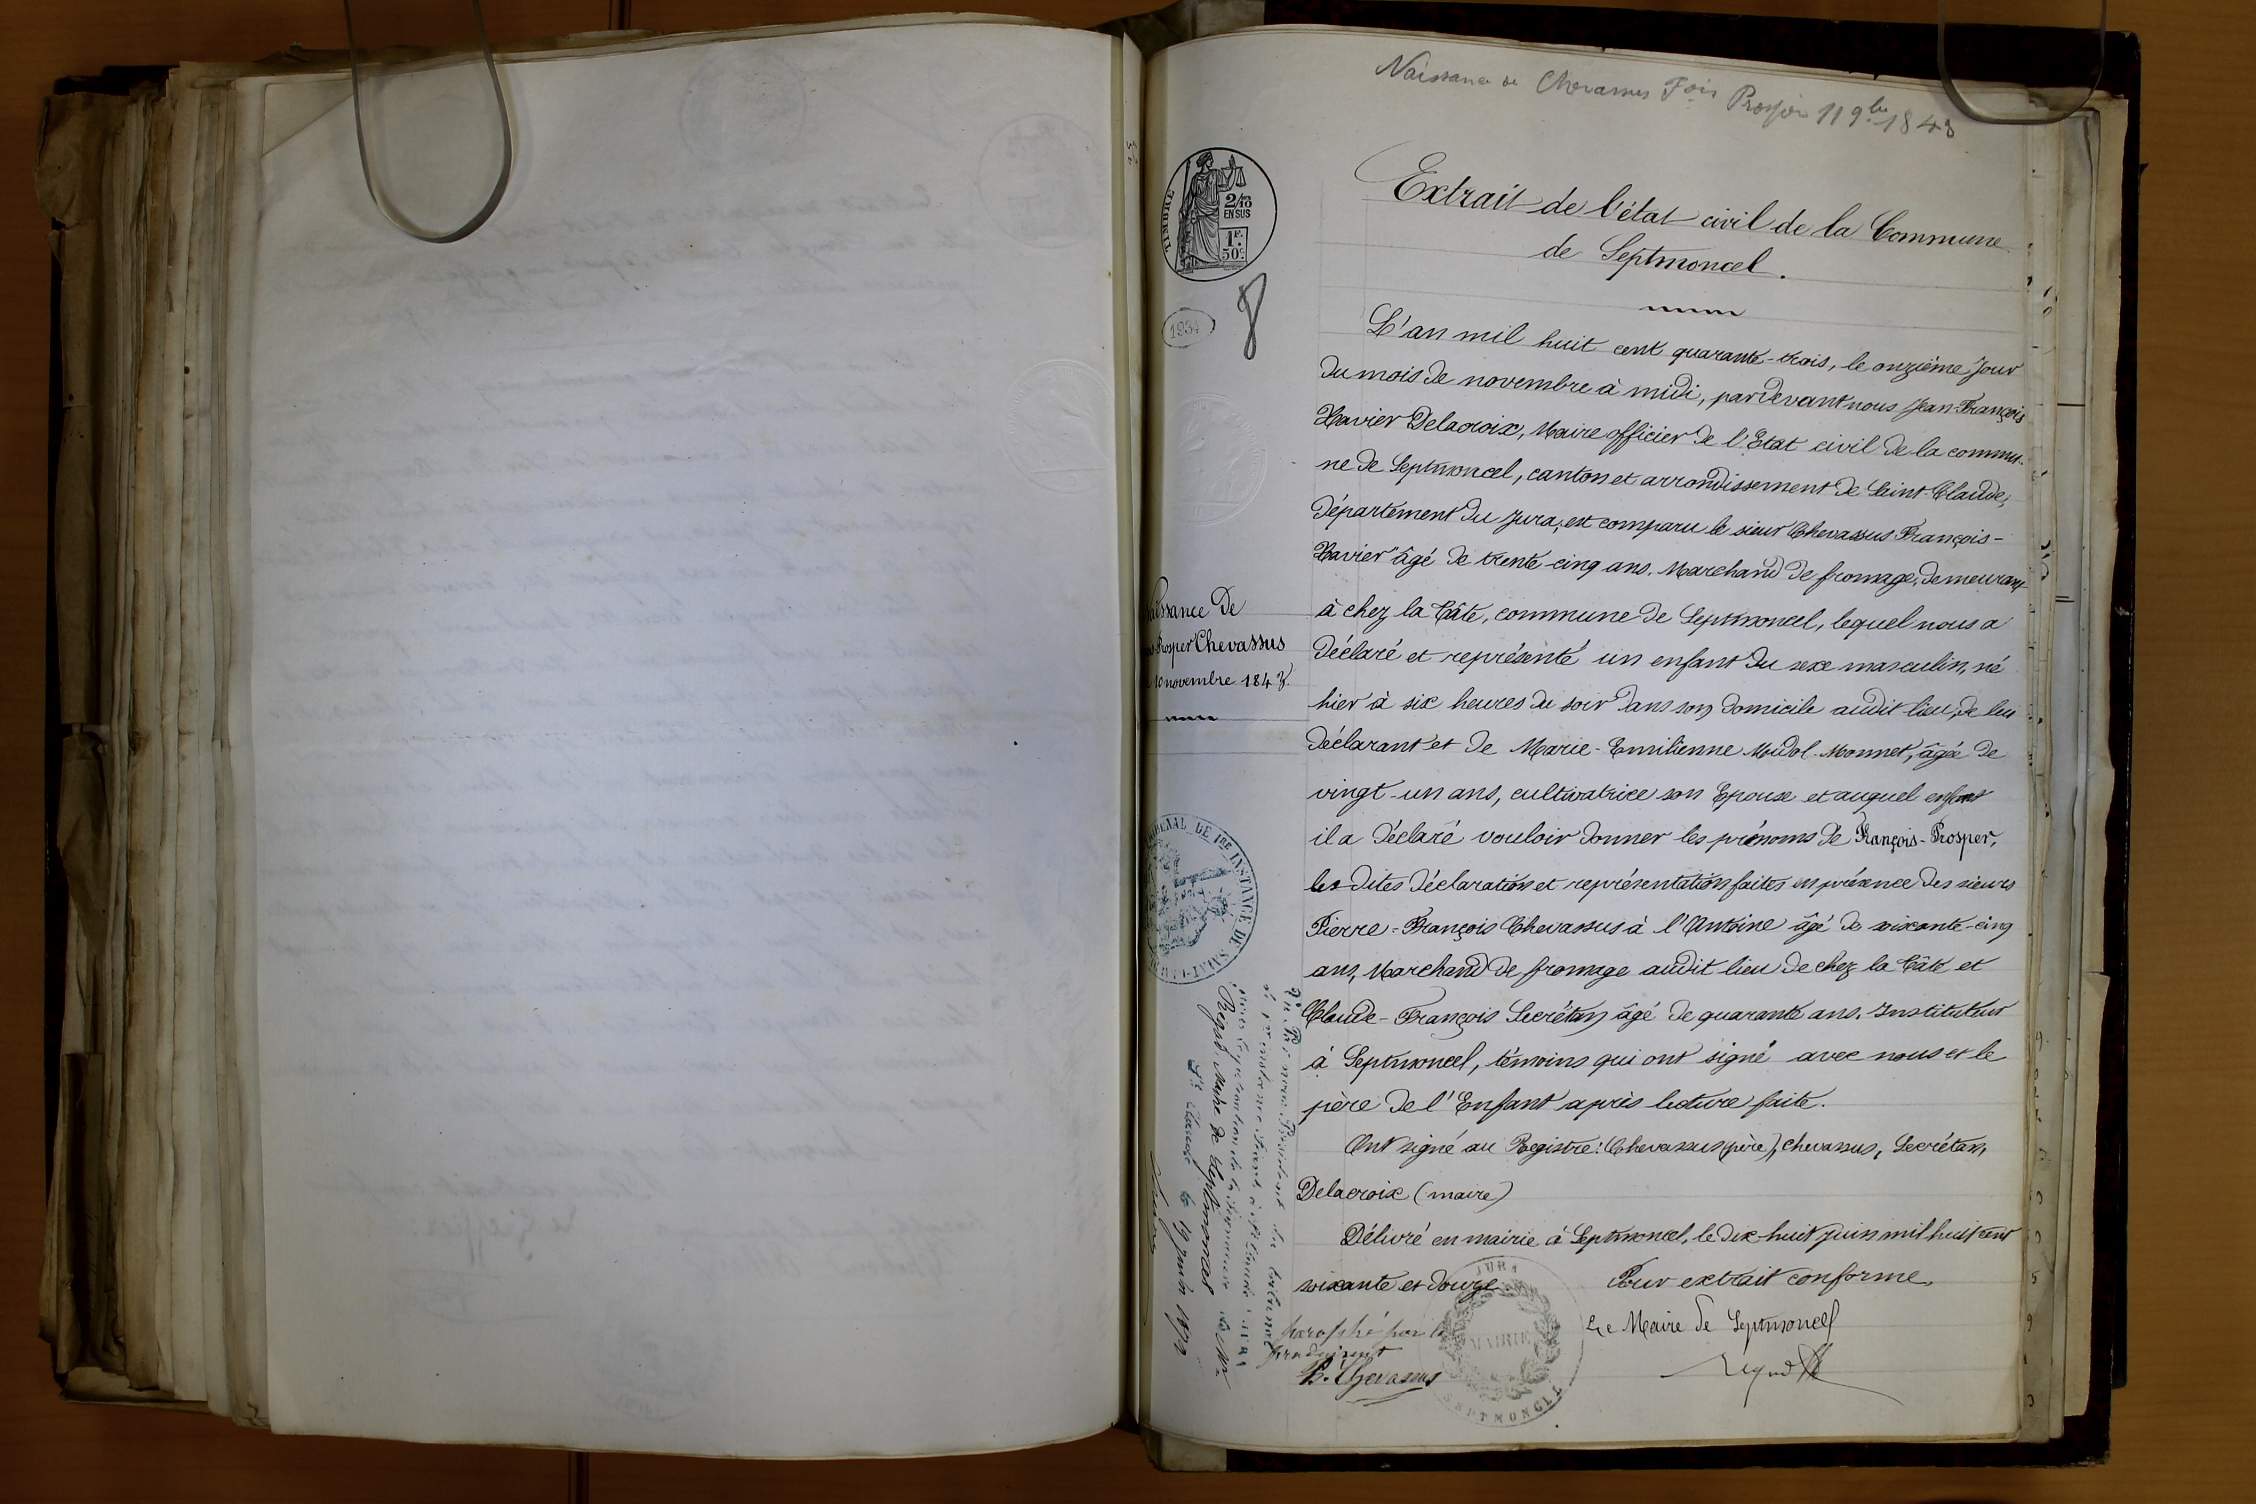 Naissance de Chevassus Fois Prosper 11 9bre 1843
Extrait de l'état civil de la Commune
de Septmoncel.
TIMBRE
2/10
EN SUS
1F.
50c
1934
8
L'an mil huit cent quarante-trois, le onzième jour
du mois de novembre à midi, pardevant nous Jean-François
Xavier Delacroix, Maire officier de l'Etat civil de la commu-
ne de Septmoncel, canton et arrondissement de Saint-Claude,
département du Jura, est comparu le sieur Chevassus François-
Xavier âgé de trente-cinq ans, Marchand de fromage, demeurant
à chez la Câte, commune de Septmoncel, lequel nous a
déclaré et représenté un enfant du sexe masculin, né
hier à six heures du soir dans son domicile audit lieu, de lui
déclarant et de Marie-Emilienne Midol-Monnet, âgée de
vingt-un ans, cultivatrice son Epouse et auquel enfant
il a déclaré vouloir donner les prénoms de François-Prosper,
les dites déclaration et représentation faites en présence des sieurs
Pierre-François Chevassus à l'Antoine âgé de soixante-cinq
ans, Marchand de fromage audit lieu de chez la Câte et
Claude-François Secrétan âgé de quarante ans, Instituteur
à Septmoncel, témoins qui ont signé avec nous et le
père de l'Enfant après lecture faite.
Ont signé au Registre: Chevassus (père), Chevassus, Secrétan,
Delacroix (maire)
Délivré en mairie à Septmoncel, le dix-huit juin mil huit cent
soixante et douze.
Pour extrait conforme,
Le Maire de Septmoncel
paraphé par le
produisant
P. Chevassus
JURA
MAIRIE
SEPTMONCEL
aissance de
Prosper Chevassus
10 novembre 1843.
TRIBUNAL DE 1RE INSTANCE DE SAINT-CLAUDE
Vu Par nous Président du tribunal
de 1re instance séant à St Claude
pour légalisation de la signature de Mr
Regad, Maire de Septmoncel
St Claude le 19 juin 1872